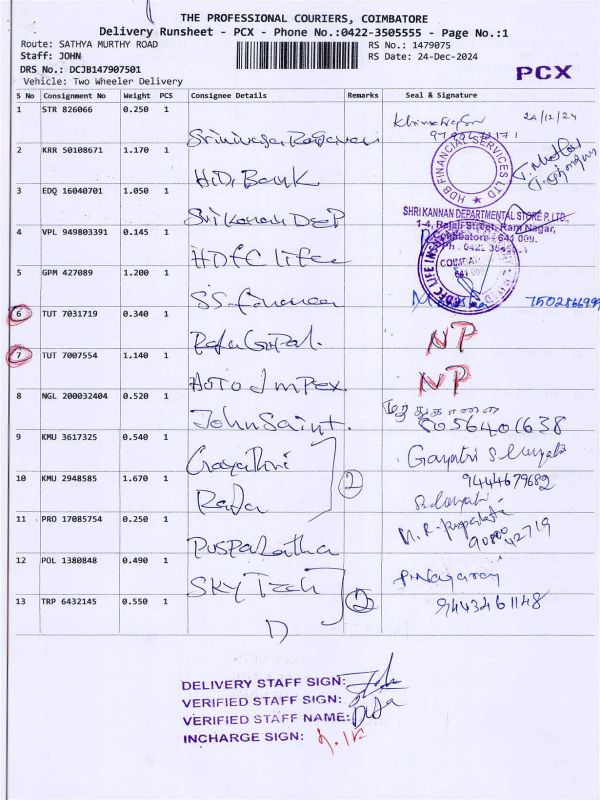 THE PROFESSIONAL COURIERS, COIMBATORE
Delivery Runsheet - PCX - Phone No.:0422-3505555 - Page No.:1
Route: SATHYA MURTHY ROAD
Staff: JOHN
DRS No.: DCJB147907501
Vehicle: Two Wheeler Delivery
RS No.: 1479075
RS Date: 24-Dec-2024
PCX
S No Consignment No Weight PCS Consignee Details Remarks Seal & Signature
1 STR 826066 0.250 1 24/12/24
2 KRR 50108671 1.170 1 HDB Bank
HDB FINANCIAL SERVICES LTD
3 EDQ 16040701 1.050 1 Sri Kanan DEP
SHRI KANNAN DEPARTMENTAL STORE P. LTD.,
1-4, Rajaji Street, Ram Nagar,
Coimbatore - 641 009.
4 VPL 949803391 0.145 1 HDFC Life
HDFC LIFE
5 GPM 427089 1.200 1 SS Finance
6 TUT 7031719 0.340 1 RajaGopal. NP
7 TUT 7007554 1.140 1 Auto Impex. NP
8 NGL 200032404 0.520 1 John Saint. 8056401638
9 KMU 3617325 0.540 1 Gayathri
9444679682
10 KMU 2948585 1.670 1 Raja 2
11 PRO 17085754 0.250 1 Puspalatha
12 POL 1380848 0.490 1 SKY Tech
13 TRP 6432145 0.550 1 D 2 9443461148
DELIVERY STAFF SIGN:
VERIFIED STAFF SIGN:
VERIFIED STAFF NAME:
INCHARGE SIGN: